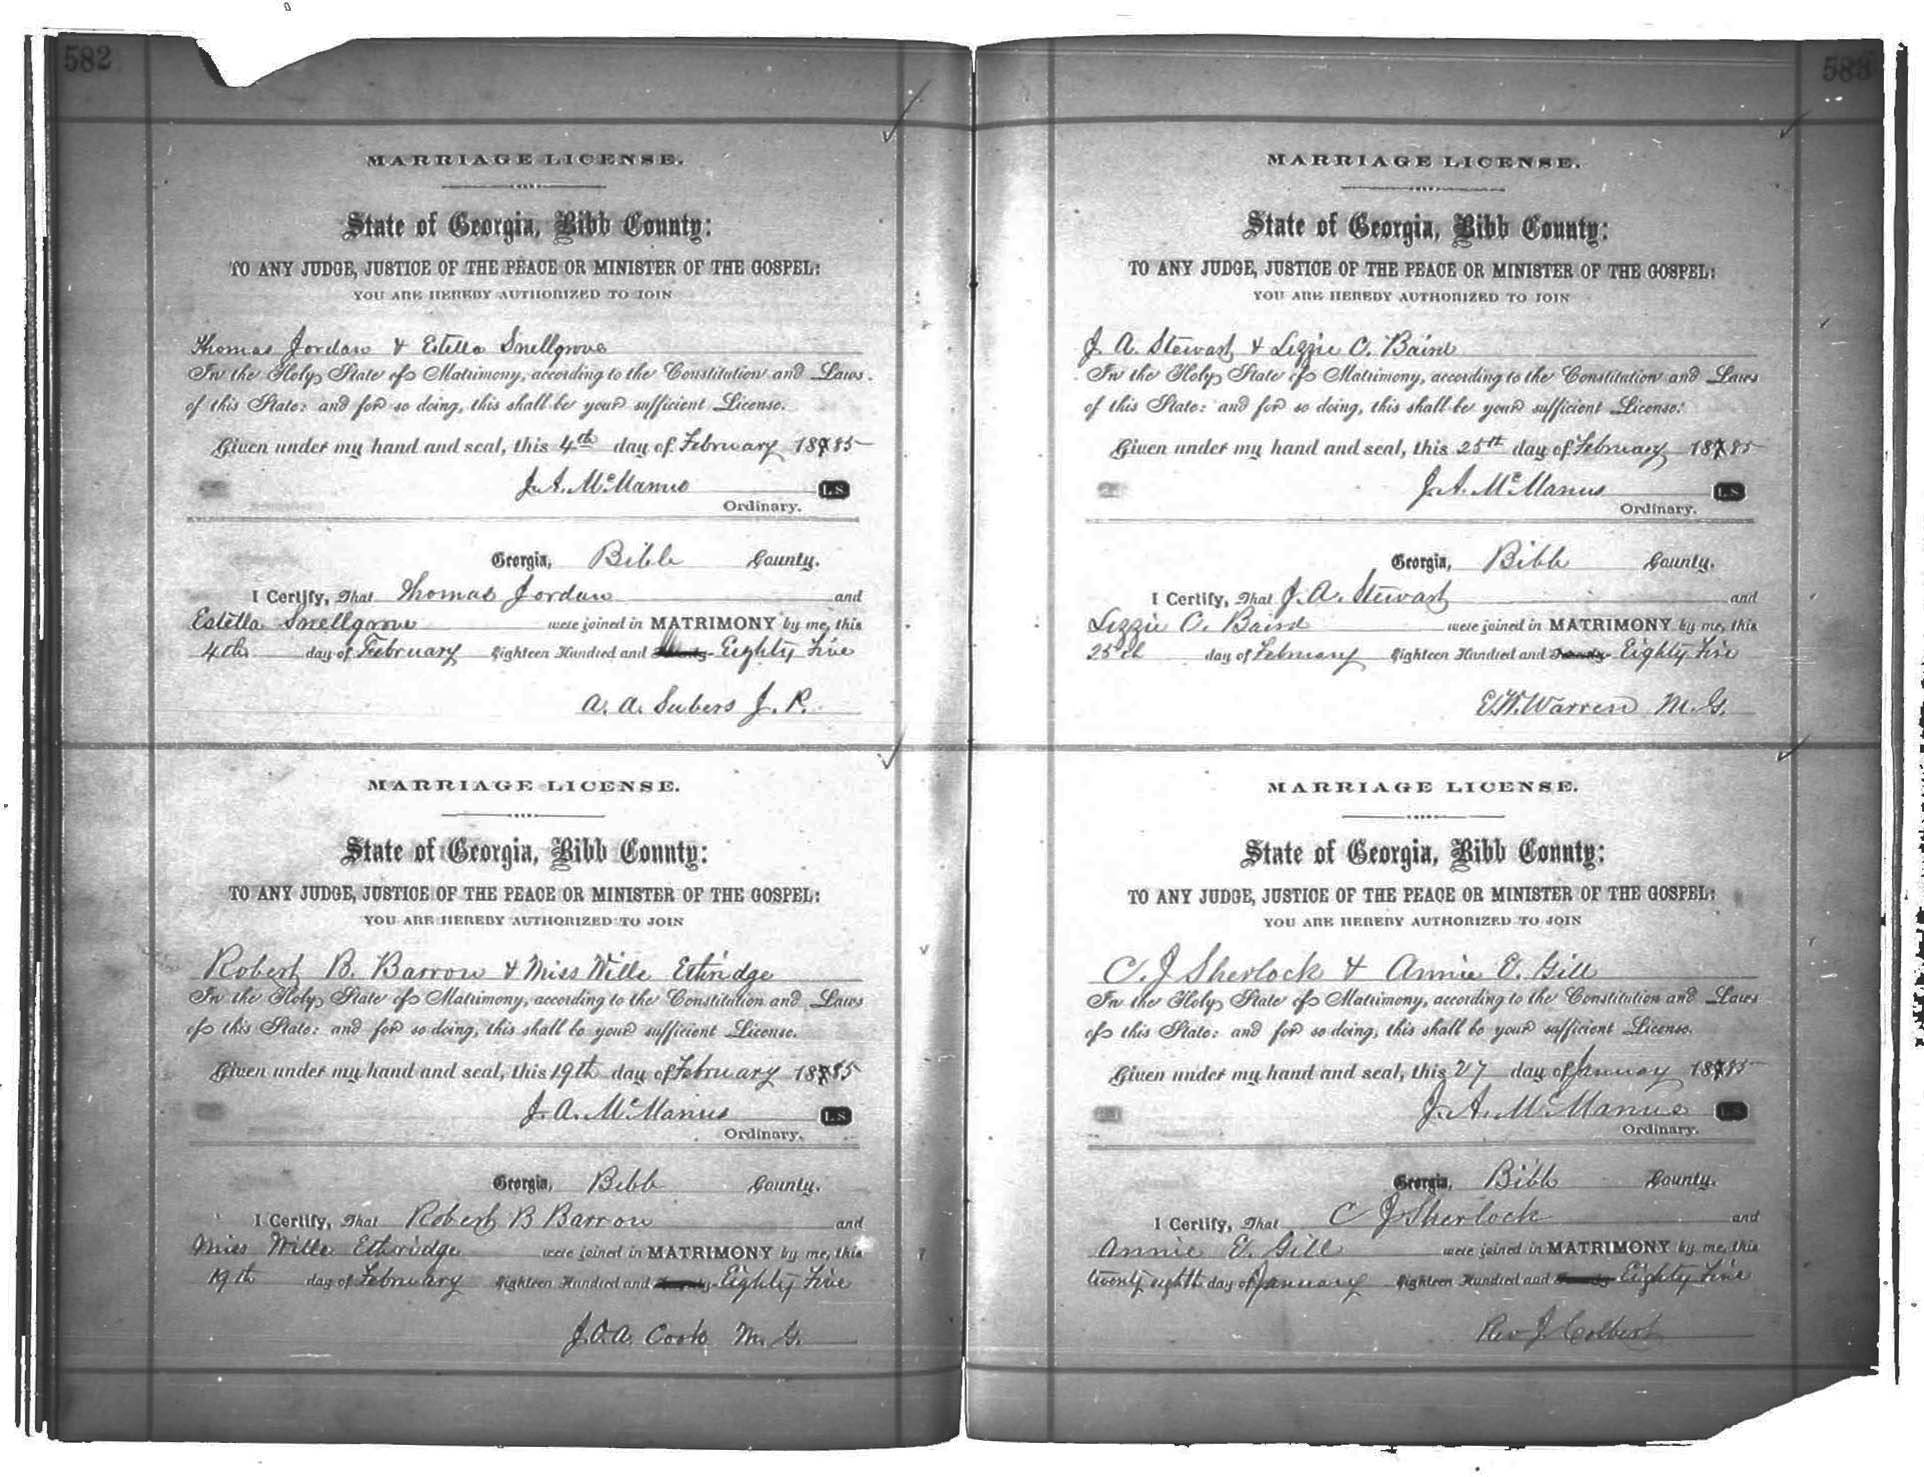 582
MARRIAGE LICENSE.
State of Georgia, Bibb County:
TO ANY JUDGE, JUSTICE OF THE PEACE OR MINISTER OF THE GOSPEL:
YOU ARE HEREBY AUTHORIZED TO JOIN
Thomas Jordan & Estella Snellgrove
In the Holy State of Matrimony, according to the Constitution and Laws
of this State: and for so doing, this shall be your sufficient License.
Given under my hand and seal, this 4th day of February 1885
J. A. McManus LS
Ordinary.
Georgia, Bibb County.
I Certify, That Thomas Jordan and
Estella Snellgrove were joined in MATRIMONY by me, this
4th day of February Eighteen Hundred and Eighty Five
A. A. Subers J. P.
MARRIAGE LICENSE.
State of Georgia, Bibb County:
TO ANY JUDGE, JUSTICE OF THE PEACE OR MINISTER OF THE GOSPEL:
YOU ARE HEREBY AUTHORIZED TO JOIN
Robert B. Barron & Miss Wille Ethridge
In the Holy State of Matrimony, according to the Constitution and Laws
of this State: and for so doing, this shall be your sufficient License.
Given under my hand and seal, this 19th day of February 1885
J. A. McManus LS
Ordinary.
Georgia, Bibb County.
I Certify, That Robert B Barron and
Miss Wille Ethridge were joined in MATRIMONY by me, this
19th day of February Eighteen Hundred and Eighty Five
J. O. A. Cook M. G.
583
MARRIAGE LICENSE.
State of Georgia, Bibb County:
TO ANY JUDGE, JUSTICE OF THE PEACE OR MINISTER OF THE GOSPEL:
YOU ARE HEREBY AUTHORIZED TO JOIN
J. A. Stewart & Lizzie C. Baird
In the Holy State of Matrimony, according to the Constitution and Laws
of this State: and for so doing, this shall be your sufficient License.
Given under my hand and seal, this 25th day of February 1885
J. A. McManus LS
Ordinary.
Georgia, Bibb County.
I Certify, That J. A. Stewart and
Lizzie C. Baird were joined in MATRIMONY by me, this
25th day of February Eighteen Hundred and Eighty Five
E. W. Warren M. G.
MARRIAGE LICENSE.
State of Georgia, Bibb County:
TO ANY JUDGE, JUSTICE OF THE PEACE OR MINISTER OF THE GOSPEL:
YOU ARE HEREBY AUTHORIZED TO JOIN
C. J Sherlock & Annie V. Gill
In the Holy State of Matrimony, according to the Constitution and Laws
of this State: and for so doing, this shall be your sufficient License.
Given under my hand and seal, this 27 day of January 1885
J. A. McManus LS
Ordinary.
Georgia, Bibb County.
I Certify, That C J Sherlock and
Annie V. Gill were joined in MATRIMONY by me, this
twenty eighth day of January Eighteen Hundred and Eighty Five
Rev J Colbert